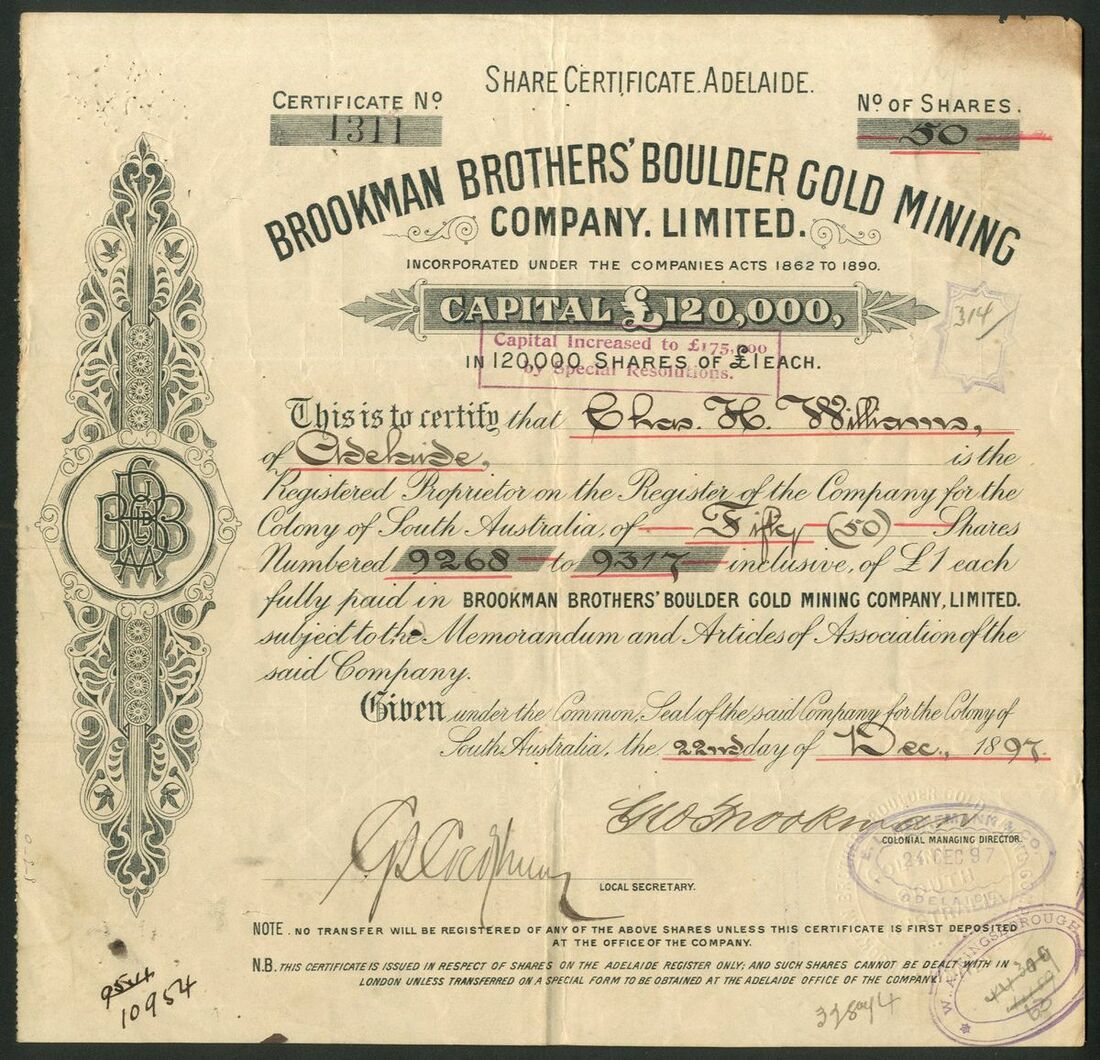 SHARE CERTIFICATE. ADELAIDE.
CERTIFICATE No
1311
No OF SHARES.
50
BROOKMAN BROTHERS' BOULDER GOLD MINING
COMPANY. LIMITED.
INCORPORATED UNDER THE COMPANIES ACTS 1862 TO 1890.
CAPITAL £120,000,
314/
Capital Increased to £175,000
IN 120,000 SHARES OF £1 EACH.
by Special Resolutions.
This is to certify that Chas. H. Williams,
of Adelaide, is the
Registered Proprietor on the Register of the Company for the
Colony of South Australia, of Fifty (50) Shares
Numbered 9268 to 9317 inclusive, of £1 each
fully paid in BROOKMAN BROTHERS' BOULDER GOLD MINING COMPANY, LIMITED.
subject to the Memorandum and Articles of Association of the
said Company.
Given under the Common Seal of the said Company for the Colony of
South Australia, the 22nd day of Dec., 1897.
Geo Brookman
COLONIAL MANAGING DIRECTOR.
24 DEC 97
ADELAIDE
LOCAL SECRETARY.
NOTE. NO TRANSFER WILL BE REGISTERED OF ANY OF THE ABOVE SHARES UNLESS THIS CERTIFICATE IS FIRST DEPOSITED
AT THE OFFICE OF THE COMPANY.
N.B. THIS CERTIFICATE IS ISSUED IN RESPECT OF SHARES ON THE ADELAIDE REGISTER ONLY; AND SUCH SHARES CANNOT BE DEALT WITH IN
LONDON UNLESS TRANSFERRED ON A SPECIAL FORM TO BE OBTAINED AT THE ADELAIDE OFFICE OF THE COMPANY.
9544
10954